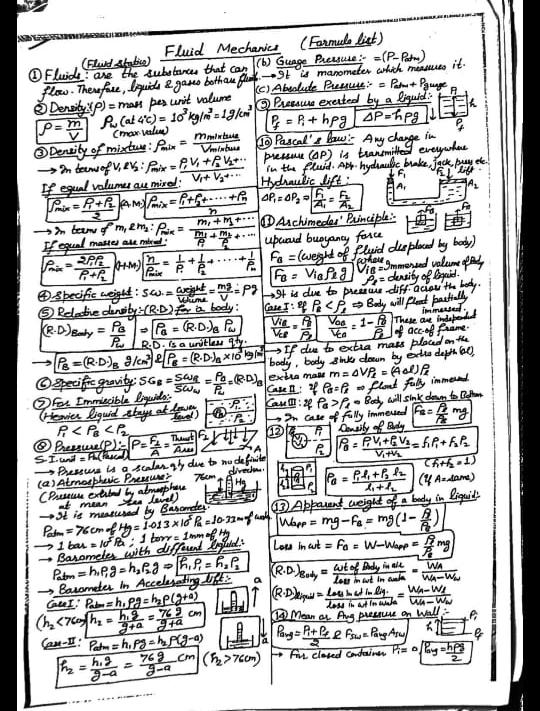 Fluid Mechanics (Formula list)
(Fluid statics)
① Fluids: are the substances that can
flow. Therefore, liquids & gases both are fluids.
② Density: (ρ) = mass per unit volume
ρ = m/V ρw (at 4°C) = 10³ kg/m³ = 1 g/cm³
(max value)
③ Density of mixture: ρmix = m mixture / V mixture
→ In terms of V₁ & V₂: ρmix = ρ₁V₁ + ρ₂V₂ .... / V₁ + V₂ ....
If equal volumes are mixed:
ρmix = ρ₁ + ρ₂ / 2 (A.M) ρmix = ρ₁ + ρ₂ + ..... + ρn / n
→ In terms of m₁ & m₂: ρmix = m₁ + m₂ + ..... / m₁/ρ₁ + m₂/ρ₂ + ....
If equal masses are mixed:
ρmix = 2ρ₁ρ₂ / ρ₁ + ρ₂ (H.M) n/ρmix = 1/ρ₁ + 1/ρ₂ + ..... + 1/ρn
④ Specific weight: S.W. = weight / Volume = mg / V = ρg
⑤ Relative density: (R.D) for a body:
(R.D.)Body = ρB / ρw ⇒ ρB = (R.D)B ρw
R.D. is a unitless qty:
⇒ ρB = (R.D.)B g/cm³ & ρB = (R.D.)B × 10³ kg/m³
⑥ Specific gravity: SGB = SWB / SWw = ρB / ρw = (R.D)B
⑦ For Immiscible liquids:
(Heavier liquid stays at lower
level)
ρ₁ < ρB < ρ₂
⑧ Pressure (P): P = F⊥ / A = Thrust / Area
S.I. unit = Pa (Pascal)
→ Pressure is a scalar qty due to no definite
direction.
(a) Atmospheric Pressure: 76cm Hg
(Pressure exerted by atmosphere
at mean sea level)
→ It is measured by Barometer
Patm = 76 cm of Hg = 1.013 × 10⁵ Pa = 10.33m of water
→ 1 bar = 10⁵ Pa ; 1 torr = 1mm of Hg
→ Barometer with different liquid:
Patm = h₁ρ₁g = h₂ρ₂g ⇒ h₁ρ₁ = h₂ρ₂
→ Barometer in Accelerating lift:
Case I: Patm = h₁ρg = h₂ρ(g+a)
(h₂ < 76cm) h₂ = h₁g / g+a = 76g / g+a cm
Case-II: Patm = h₁ρg = h₂ρ(g-a)
h₂ = h₁g / g-a = 76g / g-a cm (h₂ > 76cm)
(b) Guage Pressure: = (P - Patm)
→ It is manometer which measures it.
(c) Absolute Pressure: = Patm + Pguage
⑨ Pressure exerted by a liquid:
Pf = Pi + hρg ΔP = hρg
⑩ Pascal's law: Any change in
pressure (ΔP) is transmitted everywhere
in the fluid. App. hydraulic brake, jack, press etc.
Hydraulic lift:
ΔP₁ = ΔP₂ ⇒ F₁/A₁ = F₂/A₂
⑪ Archimedes' Principle:
upward buoyancy force
FB = (weight of fluid displaced by body)
FB = VIB ρℓ g where VIB = Immersed volume of Body
ρℓ = density of liquid.
→ It is due to pressure diff. across the body.
Case I: If ρB < ρℓ ⇒ Body will float partially
immersed.
VIB / VCB = ρB / ρℓ VOB / VCB = 1 - ρB / ρℓ These are independent
of acc. of frame.
→ If due to extra mass placed on the
body, body sinks down by extra depth (Δl)
extra mass m = ΔVρℓ = (AΔl)ρℓ
Case II: If ρB = ρℓ ⇒ float fully immersed
Case III: If ρB > ρℓ ⇒ Body will sink down to Bottom
→ In case of fully immersed FB = ρℓ / ρB mg
⑫ Density of Body
ρB = ρ₁V₁ + ρ₂V₂ / V₁ + V₂ = f₁ρ₁ + f₂ρ₂
(f₁ + f₂ = 1)
ρB = ρ₁l₁ + ρ₂l₂ / l₁ + l₂ (if A = same)
⑬ Apparent weight of a body in liquid:
Wapp = mg - FB = mg (1 - ρℓ / ρB)
Loss in wt = FB = W - Wapp = ρℓ / ρB mg
(R.D.)Body = wt of Body in air / loss in wt in water = WA / WA - Ww
(R.D)liquid = loss in wt in liq. / loss in wt in water = WA - Wℓ / WA - Ww
⑭ Mean or Avg pressure on Wall:
Pavg = Pi + Pf / 2 & Fsw = Pavg Asw
→ For closed container Pi = 0, Pavg = hρg / 2